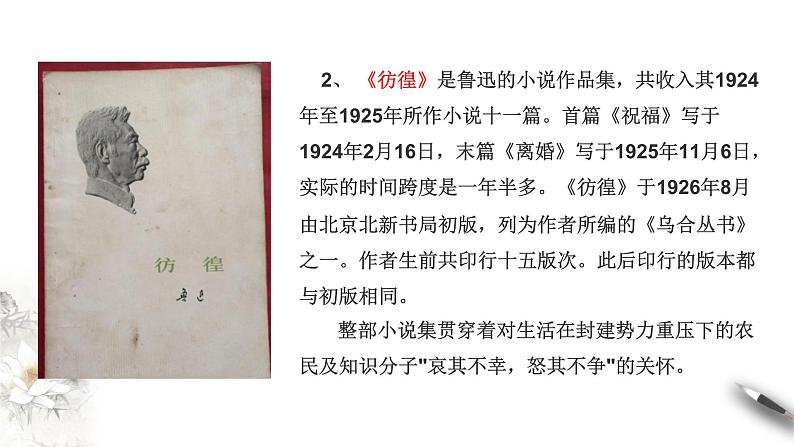 2、《彷徨》是鲁迅的小说作品集，共收入其1924
年至1925年所作小说十一篇。首篇《祝福》写于
1924年2月16日，末篇《离婚》写于1925年11月6日，
实际的时间跨度是一年半多。《彷徨》于1926年8月
由北京北新书局初版，列为作者所编的《乌合丛书》
之一。作者生前共印行十五版次。此后印行的版本都
与初版相同。
整部小说集贯穿着对生活在封建势力重压下的农
民及知识分子"哀其不幸，怒其不争"的关怀。
彷徨
鲁迅